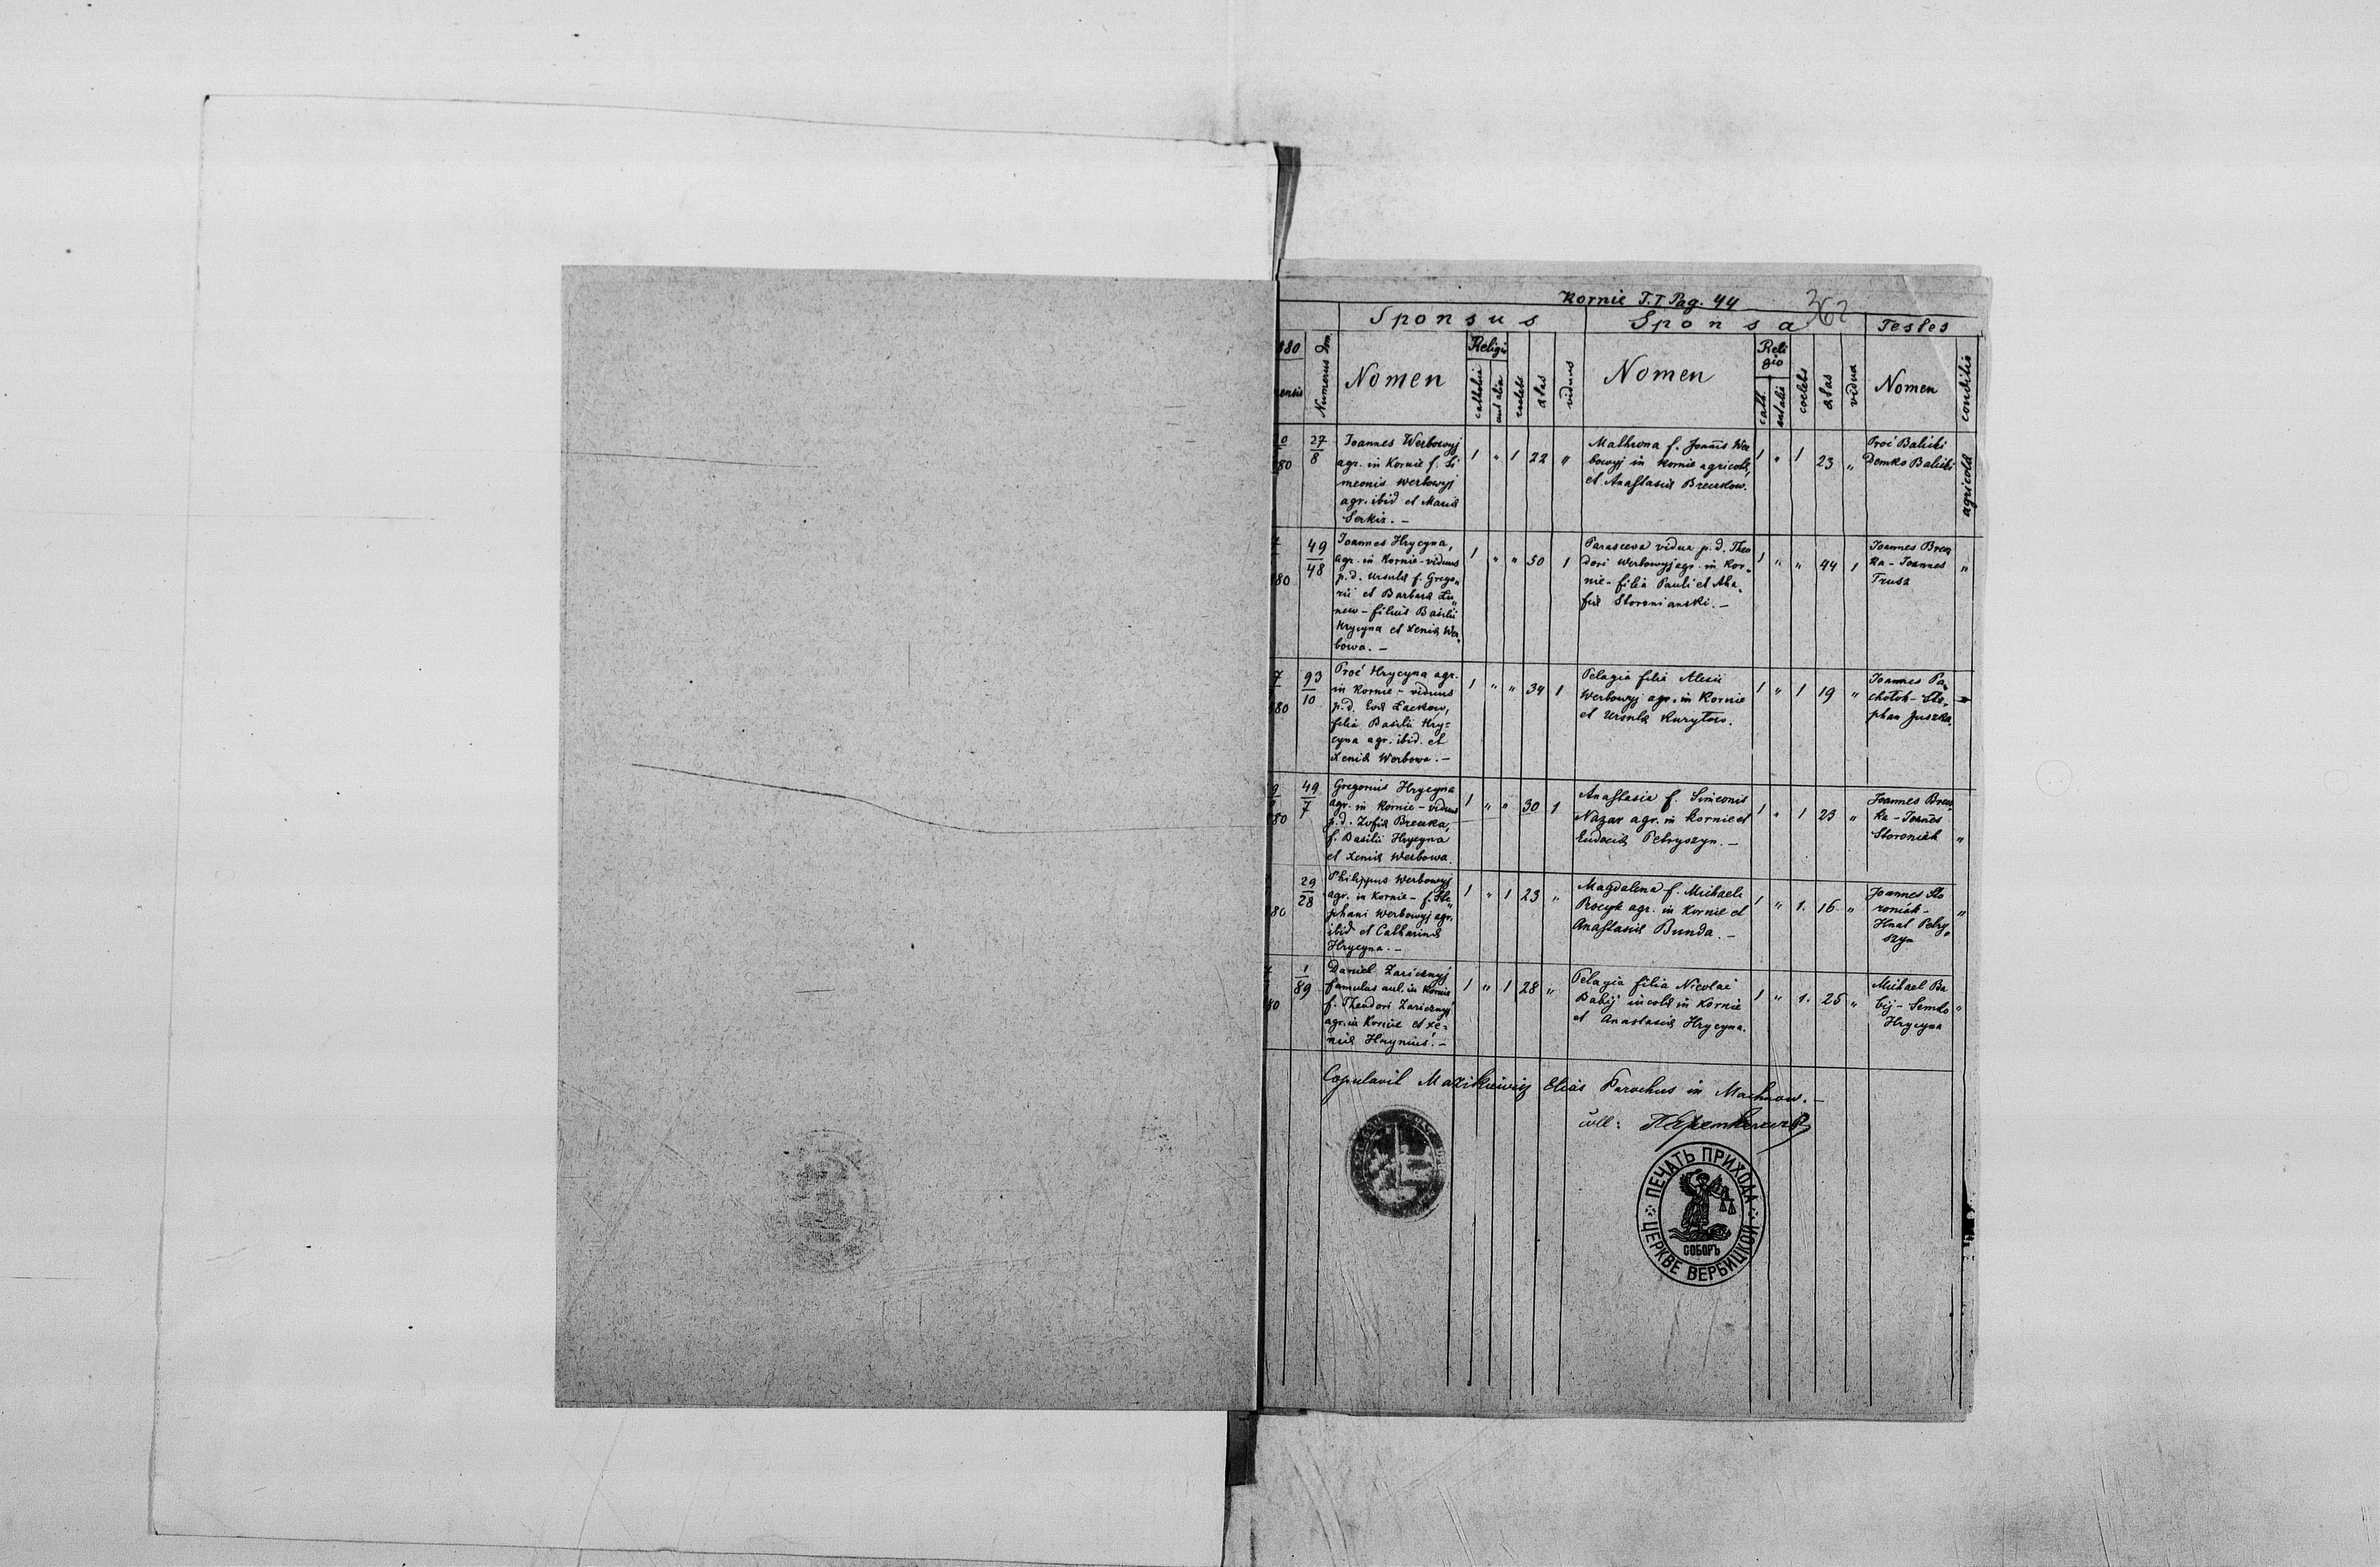 Kornie T.I Pag. 44
362
Sponsus
Sponsa
Testes
Numerus Dom.
Nomen
Religio
catholica
aut alia
coelebs
aetas
viduus
Nomen
Religio
cath.
aut alia
coelebs
aetas
vidua
Nomen
conditio
27
8
Joannes Werbowyj
agr. in Kornie f. Si
meonis Werbowyj
agr. ibid et Maria
Serkiz. –
1 " 1 22 "
Mathrona f. Joannis Wer
bowyj in Kornie agricola,
et Anastasia
1 " 1 23 "
Proć Balicki
Demko Balicki
agricola
49
48
Joannes Hrycyna,
agr. in Kornie – viduus
p.d. Ursula f. Grego„
rii et Barbara
– filius Basilii
Hrycyna et Xenia Wer„
bowa. –
1 " " 50 1
Parasceva vidua p.d. Theo
dori Werbowyj agr. in Kor„
nie – filia Pauli et Aha„
fia Storonianski. –
1 " " 44 1
Joannes Brecz
ka – Joannes
Trusz
"
93
10
Proć Hrycyna agr.
in Kornie – viduus
p.d. Eva
filia Basilii Hry„
cyna agr. ibid. et
Xenia Werbowa. –
1 " " 34 1
Pelagia filia Alexii
Werbowyj agr. in Kornie
et Ursula Kuryłow.
1 " 1 19 "
Joannes Pa„
chołok – Ste„
phan Juszka
49
7
Gregorius Hrycyna
agr. in Kornie – viduus
p.d. Zofia Breczka,
f. Basilii Hrycyna
et Xenia Werbowa.
1 " " 30 1
Anastasia f. Simeonis
Nazar agr. in Kornie et
Eudocia Petryszyn. –
1 " 1 23 "
Joannes Brecz„
ka – Joannes
Storoniak
"
29
28
Philippus Werbowyj
agr. in Kornie – f. Ste„
phani Werbowyj agr.
ibid et Catharina
Hrycyna. –
1 " 1 23 "
Magdalena f. Michaeli
Rocyk agr. in Kornie et
Anastasia Bunda. –
1 " 1. 16 "
Joannes Sto
roniak –
Hnat Petry„
szyn
"
1
89
Daniel Zaricznyj
famulus aul. in Kornie
f. Theodori Zaricznyj
agr. in Kornie et Xe„
nia –
1 " 1 28 "
Pelagia filia Nicolai
Babij incola in Kornie
et Anastasia Hrycyna.
1 " 1. 25 "
Michael Ba
bij – Semko
Hrycyna
"
Copulavit Elias Parochus in Machnow. –
ПЕЧАТЬ ПРИХОДА
ЦЕРКВЕ ВЕРБИЦКОЙ
СОБОРЪ